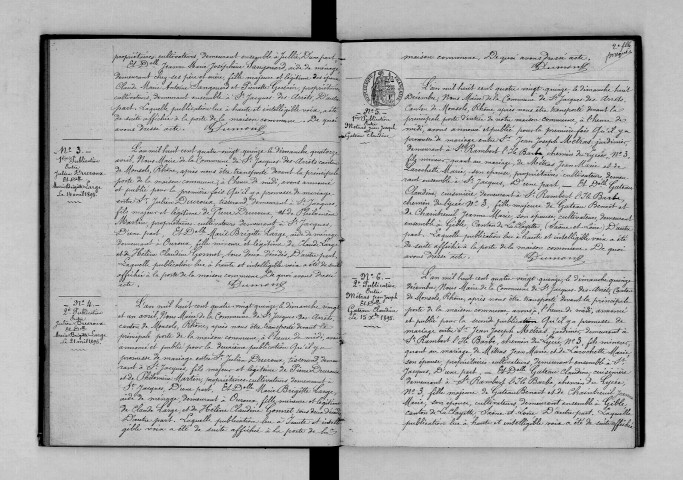 propriétaires cultivateurs demeurant ensemble à Jullié, D'une part,
Et Delle Jeanne Marie Joséphine Sangouard, aide de ménage
demeurant chez ses père et mère, fille majeure et légitime des époux
Claude Marie Antoine Sangouard et Pierrette Gessien, propriétaires
cultivateurs, demeurant ensemble à St Jacques des Arrêts, D'autre
part. Laquelle publication lue à haute et intelligible voix a été
de suite affichée à la porte de la maison commune. De quoi
avons dressé acte. Dumont
N° 3.
1ère Publication
Entre
Julien Ducroux
Et Delle
Marie Brigitte Large
Le 14 avril 1895.
L'an mil huit cent quatre-vingt quinze, le dimanche quatorze
avril, Nous Maire de la Commune de St Jacques des Arrêts canton
de Monsols, Rhône, après nous être transporté devant la principale
porte de la maison commune, à l'heure de midi, avons annoncé
et publié pour la première fois qu'il y a promesse de mariage
entre Sr Julien Ducroux, tisserand, demeurant à St Jacques,
fils majeur et légitime de Pierre Ducroux et de Philomène
Martin, propriétaires cultivateurs demeurant à St Jacques,
D'une part. Et Delle Marie Brigitte Large, aide de ménage
demeurant à Ouroux, fille mineure et légitime de Claude Large
et de Hélène Claudine Gonnet, tous deux décédés, D'autre part.
Laquelle publication lue à haute et intelligible voix a été de suite
affichée à la porte de la maison commune. De quoi avons dressé
acte. Dumont
N° 4.
2e Publication
Entre
Julien Ducroux
Et Delle
Marie Brigitte Large
Le 21 avril 1895.
L'an mil huit cent quatre-vingt quinze, le dimanche vingt
et un avril, Nous Maire de la Commune de St Jacques des Arrêts
canton de Monsols, Rhône, après nous être transporté devant la
principale porte de la maison commune, à l'heure de midi, avons
annoncé et publié pour la deuxième publication qu'il y a
promesse de mariage entre Sr Julien Ducroux, tisserand, demeu-
rant à St Jacques, fils majeur et légitime de Pierre Ducroux
et de Philomène Martin, propriétaires cultivateurs demeurant à
St Jacques, D'une part. Et Delle Marie Brigitte Large,
aide de ménage demeurant à Ouroux, fille mineure et légitime
de Claude Large et de Hélène Claudine Gonnet tous deux décédés
D'autre part. Laquelle publication lue à haute et intelli-
gible voix a été de suite affichée à la porte de la
maison commune. De quoi avons dressé acte.
Dumont
N° 5.
1ère Publication
Entre
Métras Jean Joseph
Gateau Claudine
L'an mil huit cent quatre-vingt quinze, le dimanche huit
Décembre, Nous Maire de la Commune de St Jacques des Arrêts,
Canton de Monsols, Rhône, après nous être transporté devant la
principale porte d'entrée de notre maison commune, à l'heure de
midi, avons annoncé et publié pour la première fois qu'il y a
promesse de mariage entre Sr Jean Joseph Métras, jardinier,
demeurant à St Rambert l'Ile Barbe, chemin du Lycée N° 3,
fils mineur quant au mariage, de Métras Jean Marie et de
Larochette Marie, son épouse, propriétaires cultivateurs demeu-
rant ensemble à St Jacques, D'une part. Et Delle Gateau
Claudine, cuisinière demeurant à St Rambert l'Ile Barbe
chemin du Lycée N° 3, fille majeure de Gateau Benoit et
de Chaintreuil Jeanne Marie, son épouse, cultivateurs, demeurant
ensemble à Gibles, Canton de La Clayette, Saône-et-Loire, D'autre
part. Laquelle publication lue à haute et intelligible voix, a été
de suite affichée à la porte de la maison commune. De quoi
avons dressé acte. Dumont
N° 6.
2e Publication
Entre
Métras Jean Joseph
Et Delle
Gateau Claudine
Le 15 Xbre 1895.
L'an mil huit cent quatre-vingt quinze, le dimanche quinze
décembre, Nous Maire de la Commune de St Jacques des Arrêts, Canton
de Monsols, Rhône, après nous être transporté devant la principale
porte de la maison commune, à l'heure de midi, avons
annoncé et publié pour la seconde publication qu'il y a promesse
de mariage entre Sr Jean Joseph Métras, jardinier, demeurant à
St Rambert l'Ile Barbe, chemin du Lycée, N° 3, fils mineur,
quant au mariage, de Métras Jean Marie et de Larochette Marie
son épouse, propriétaires cultivateurs demeurant ensemble à St
Jacques, D'une part. Et Delle Gateau Claudine, cuisinière,
demeurant à St Rambert l'Ile Barbe, chemin du Lycée,
N° 3, fille majeure de Gateau Benoit et de Chaintreuil Jeanne
Marie, son épouse, cultivateurs demeurant ensemble à Gibles,
canton de La Clayette, Saône-et-Loire, D'autre part. Laquelle
publication lue à haute et intelligible voix, a été de suite affichée